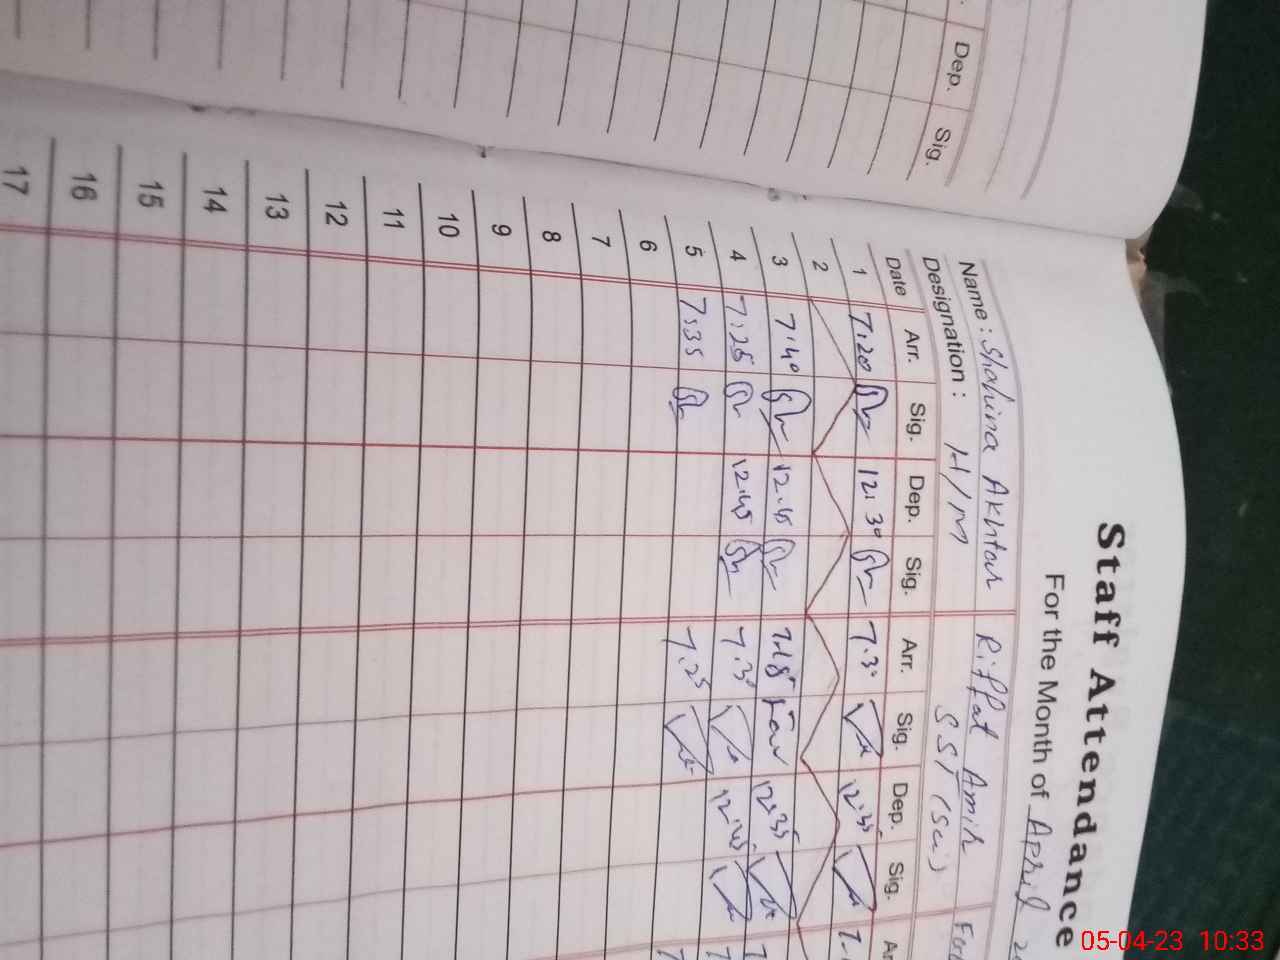 Dep. Sig.
Staff Attendance
For the Month of April
Name : Shahina Akhtar Riffat Amin
Designation : H/M SST (Sci)
Date Arr. Sig. Dep. Sig. Arr. Sig. Dep. Sig.
1 7:20 12:30 7.30 12:35
2
3 7:40 12:45 7:18 12:35
4 7:25 12:45 7:30 12:45
5 7:35 7:25
6
7
8
9
10
11
12
13
14
15
16
17
05-04-23 10:33